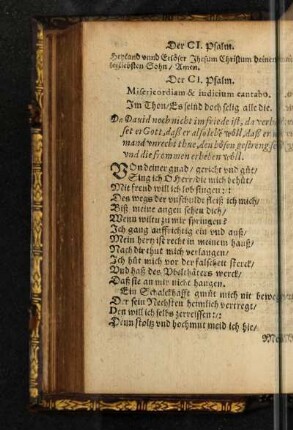 Der CI. Psalm.
Heyland vnnd Erlöser Jhesum Christum deinen
liebsten Sohn/ Amen.
Der CI. Psalm.
Misericordiam & iudicium cantabo.
Im Thon/ Es seind doch selig alle die.
Da Dauid noch nicht im friede ist, da
set er Gott, daß er also leben wöll, daß er
mand vnrecht thue, den bösen
vnd die frommen erheben wöll.
VOn deiner gnad/ gericht vnd güt/
Sing ich O Herr/ die mich behüt/
Mit freud will ich lobsingen::
Des wegs der vnschuldt fleiß ich mich/
Biß meine augen sehen dich/
Wenn wiltu zu mir springen?
Ich gang auffrichtig ein vnd auß/
Mein hertz ist recht in meinem hauß/
Nach dir thut mich verlangen/
Ich hüt mich vor der falscheit sterck/
Vnd haß des Vbelthäters werck/
Daß sie an mir nicht hangen.
Ein Schalckhafft gmüt mich nit
Der sein Nechsten heimlich vertregt/
Den will ich selbs zerreissen::
Denn stoltz vnd hochmut meid ich hie/